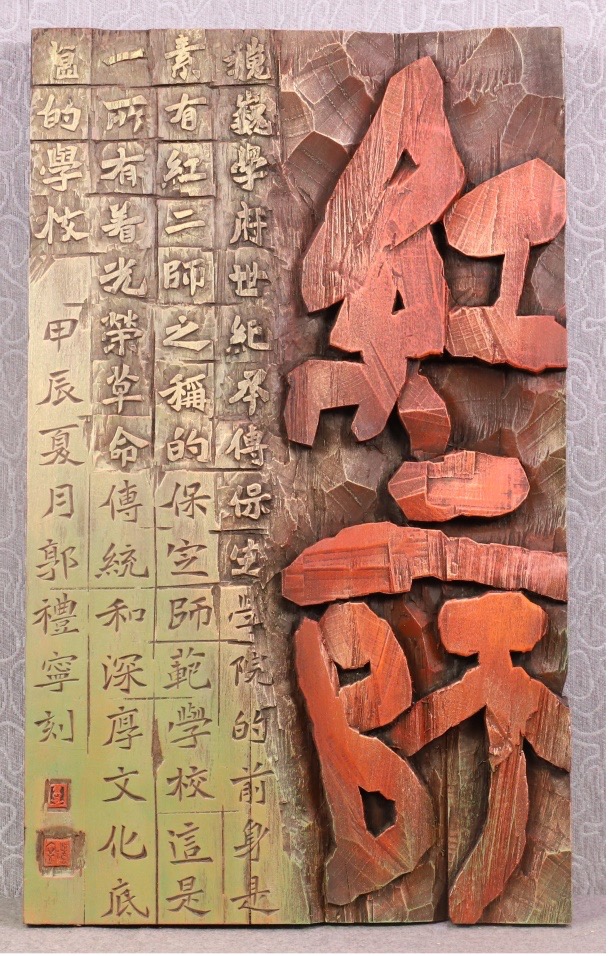 紅二師
巍巍學府世紀承傳保定學院的前身是
素有紅二師之稱的保定師範學校這是
一所有着光榮革命傳統和深厚文化底
藴的學校
甲辰夏月郭禮寧刻